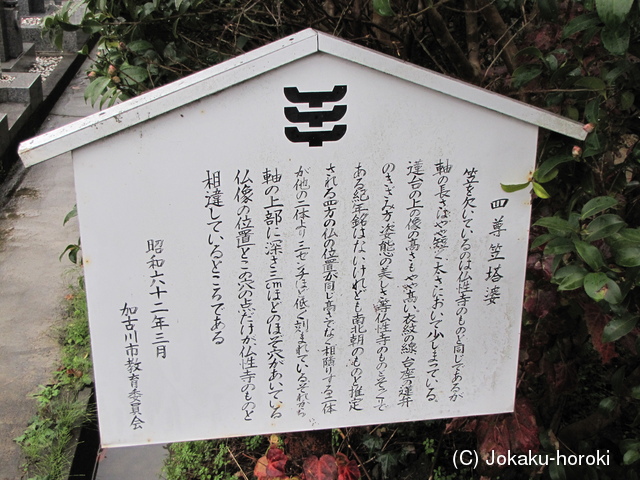 四尊笠塔婆
笠を欠いているのは仏性寺のものと同じであるが
軸の長さはやや短く太さにおいて少しまさっている。
蓮台の上の像の高さもやや高い衣紋の線、台座の蓮弁
のきざみ方、姿態の美しさ等仏性寺のものとそっくりで
ある紀年銘はないけれども南北朝のものと推定
される四方の仏の位置が同じ高さでなく相隣りする二体
が他の二体より二・三センチほど低く刻まれているそれから
軸の上部に深さ三㎝ほどのほぞ穴があいている
仏像の位置とこの穴の点だけが仏性寺のものと
相違しているところである
昭和六十二年三月
加古川市教育委員会
(C) Jokaku-horoki